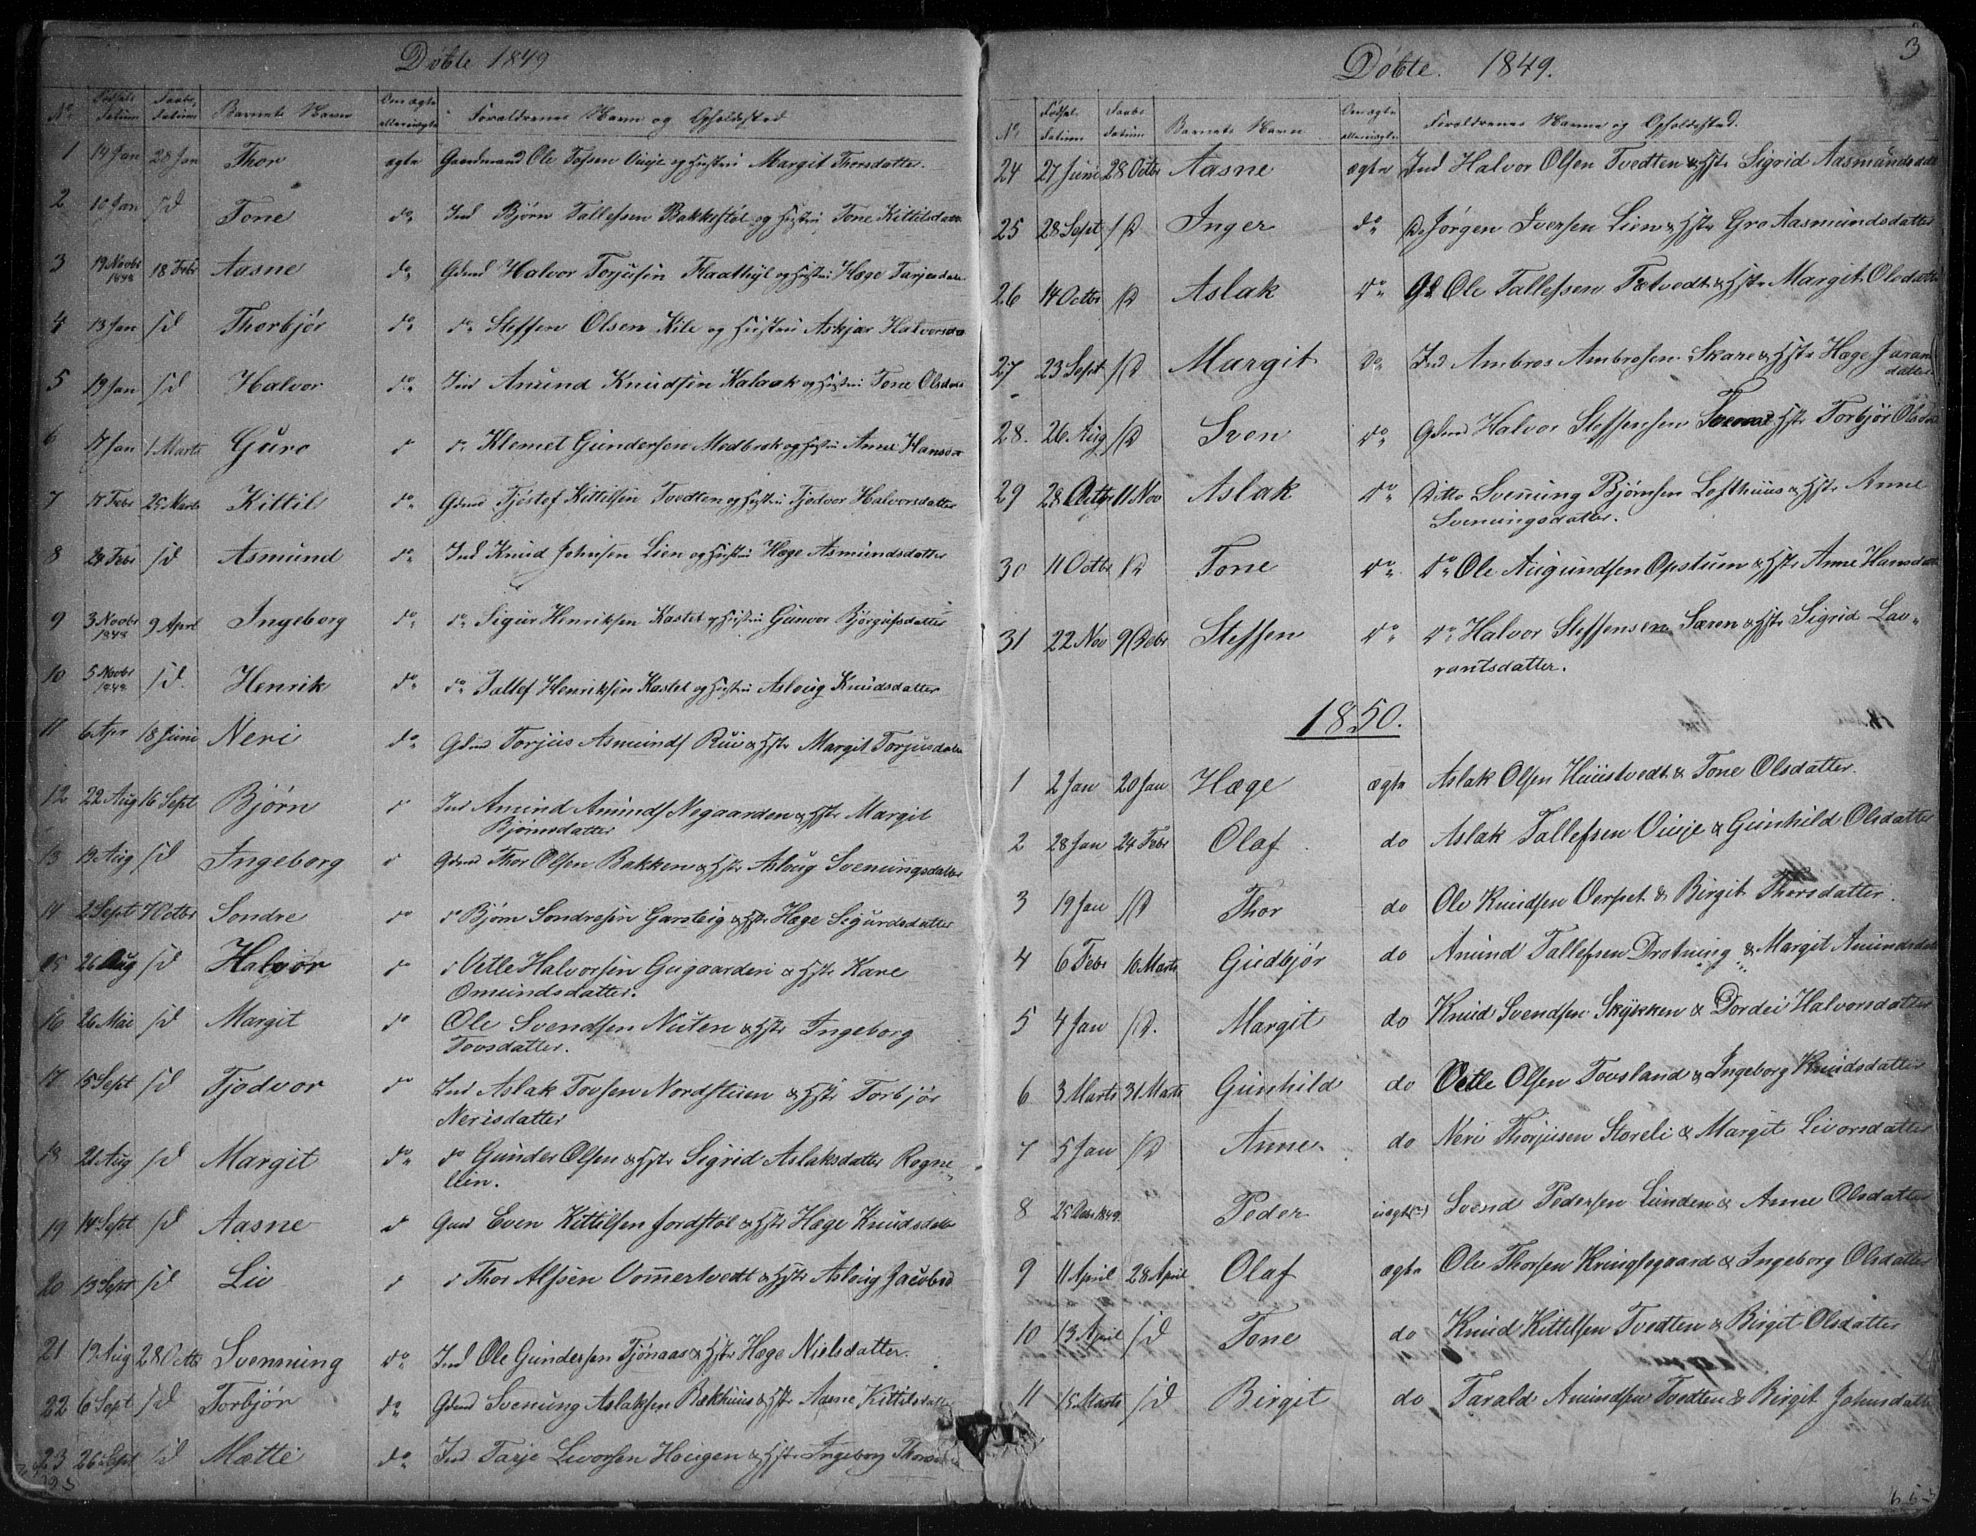 Döbte 1849
No Fødsels Datum Daabs Datum Barnets Navn Om ægte eller uægte Forældrenes Navn og Opholdssted
1 14 Jan 28 Jan Thor ægte Gaardmand Ole Tofsen Vinje og Hustru Margit Thorsdatter.
2 10 Jan sd Tone do Ind Bjørn Tallefsen Bakkestøl og Hustru Tone Kittilsdatter
3 19 Novbr 1848 18 Febr Aasne do Gdmd Halvor Torjusen Flaathyl og Hustru Hæge Tarjesdatter
4 13 Jan sd Thorbjør do do Steffen Olsen Kile og Hustru Askjær Halvorsda
5 19 Jan sd Halvor do Ind Anund Knudsen Kalaak og Hustru Tone Olsdat
6 17 Jan 1 Marts Guro d do Klemet Gundersen Medbrok og Hustru Anne Hansda
7 17 Febr 25 Marts Kittil do Gdmd Tjøstof Kittilsen Tvedten og Hustru Tjodvor Halvorsdatter
8 24 Febr sd Asmund do Ind Knud Johnsen Lien og Hustru Hæge Asmundsdatter
9 3 Novbr 1848 9 April Ingeborg do do Sigur Henriksen Kastet og Hustru Gunvor Bjørgufsdatter
10 5 Novbr 1848 sd. Henrik do do Tallef Henriksen Kastet og Hustru Asloug Knudsdatter
11 6 Apr 18 Juni Neri do Gdmd Torjus Asmunds Rui & Hstr Margit Torjusdatter
12 22 Aug 16 Sept Bjørn d Ind Amund Amunds Negaarden & Hstr Margit
Bjørnsdatter
13 13 Aug sd Ingeborg d Gdmd Thor Olsen Bakken & Hstr Asloug Sveningsdatter
14 2 Sept 7 Octbr Sondre do do Bjørn Sondresen Garsteig & Hstr Hæge Sigurdsdatter
15 26 Aug sd Halvor do d Vetle Halvorsen Gugaarden & Hstr Kare
Omundsdatter.
16 26 Mai sd Margit do Ole Svendsen Nuten & Hstr Ingeborg
Tovsdatter.
17 15 Sept sd Tjodvor do Ind Aslak Tovsen Nordstuen & Hstr Torbjør
Nerisdatter
18 21 Aug sd Margit do do Gunder Olsen & Hstr Sigrid Aslaksdatter Rogne-
lien.
19 14 Sept sd Aasne d Gmd Even Kittilsen Jordstøl & Hstr Hæge Knudsdatt
20 13 Sept sd Liv d d Thor Alfsen Vommertvedt & Hstr Asloug Jacobsd
21 19 Aug 28 Octb Svenning do Ind Ole Gundersen Tjønaas & Hstr Hæge Nielsdatter.
22 6 Sept sd Torbjør do Gdmd Svenung Aslaksen Bækhuus & Hstr Aasne Kittilsdatt
23 26 Sept sd Mætte do Ind Tarje Livorsen Hougen & Hstr Ingeborg Thorsd
Döbte. 1849.
3
No Fødsel Datum Daabs Datum Barnets Navn Om ægte eller uægte Forældrenes Navne og Opholdssted.
24 27 Juni 28 Octbr Aasne ægte Ind Halvor Olsen Tvedten & Hstr Sigrid Aasmundsdatt
25 28 Sept sd Inger do Do Jørgen Iversen Lien & Hstr Gro Aasmundsdatter
26 14 Octbr sd Aslak do Gd Ole Tallefsen Tvedt & Hstr Margit Olsdatter
27 23 Sept sd Margit do Ind Ambros Ambrosen Skare & Hstr Hæge Jaran
datter
28. 26 Aug sd Sven do Gdmd Halvor Steffensen & Hstr Torbjør Olsdat
29 28 Octbr 11 Nov Aslak do Ditto Svenung Bjørnsen Lofthuus & Hstr Anne
Svenungsdatter.
30 11 Octbr sd Tone do do Ole Augundsen Opstum & Hstr Anne Hansdatt
31 22 Nov 9 Debr Steffen do do Halvor Steffensen Særen & Hstr Sigrid Lav-
rantsdatter.
1850.
1 2 Jan 20 Jan Hæge ægte Aslak Olsen Huustvedt & Tone Olsdatter.
2 28 Jan 24 Febr Olaf do Aslak Tallefsen Vinje & Gunhild Olsdatter
3 19 Jan sd Thor do Ole Knudsen Versæt & Birgit Thorsdatter.
4 6 Febr 10 Marts Gudbjør do Amund Tallefsen Drotning & Margit Amundsdatt
5 4 Jan sd. Margit do Knud Svendsen Skykken & Dordei Halvorsdatter
6 3 Marts 31 Marts Gunhild do Vetle Olsen Tovsland & Ingeborg Knudsdatter
7 5 Jan sd Anne do Neri Thorjusen Storeli & Margit Livorsdatter
8 25 Decbr 1849 Peder uægte Svend Pedersen Lunden & Anne Olsdatter
9 11 April 28 April Olaf ægte Ole Thorsen Kringlegaard & Ingeborg Olsdatter
10 13 April sd Tone do Knud Kittilsen Tvedten & Birgit Olsdatter
11 15 Marts sd Birgit do Tarald Amundsen Tvedten & Birgit Johnsdatter